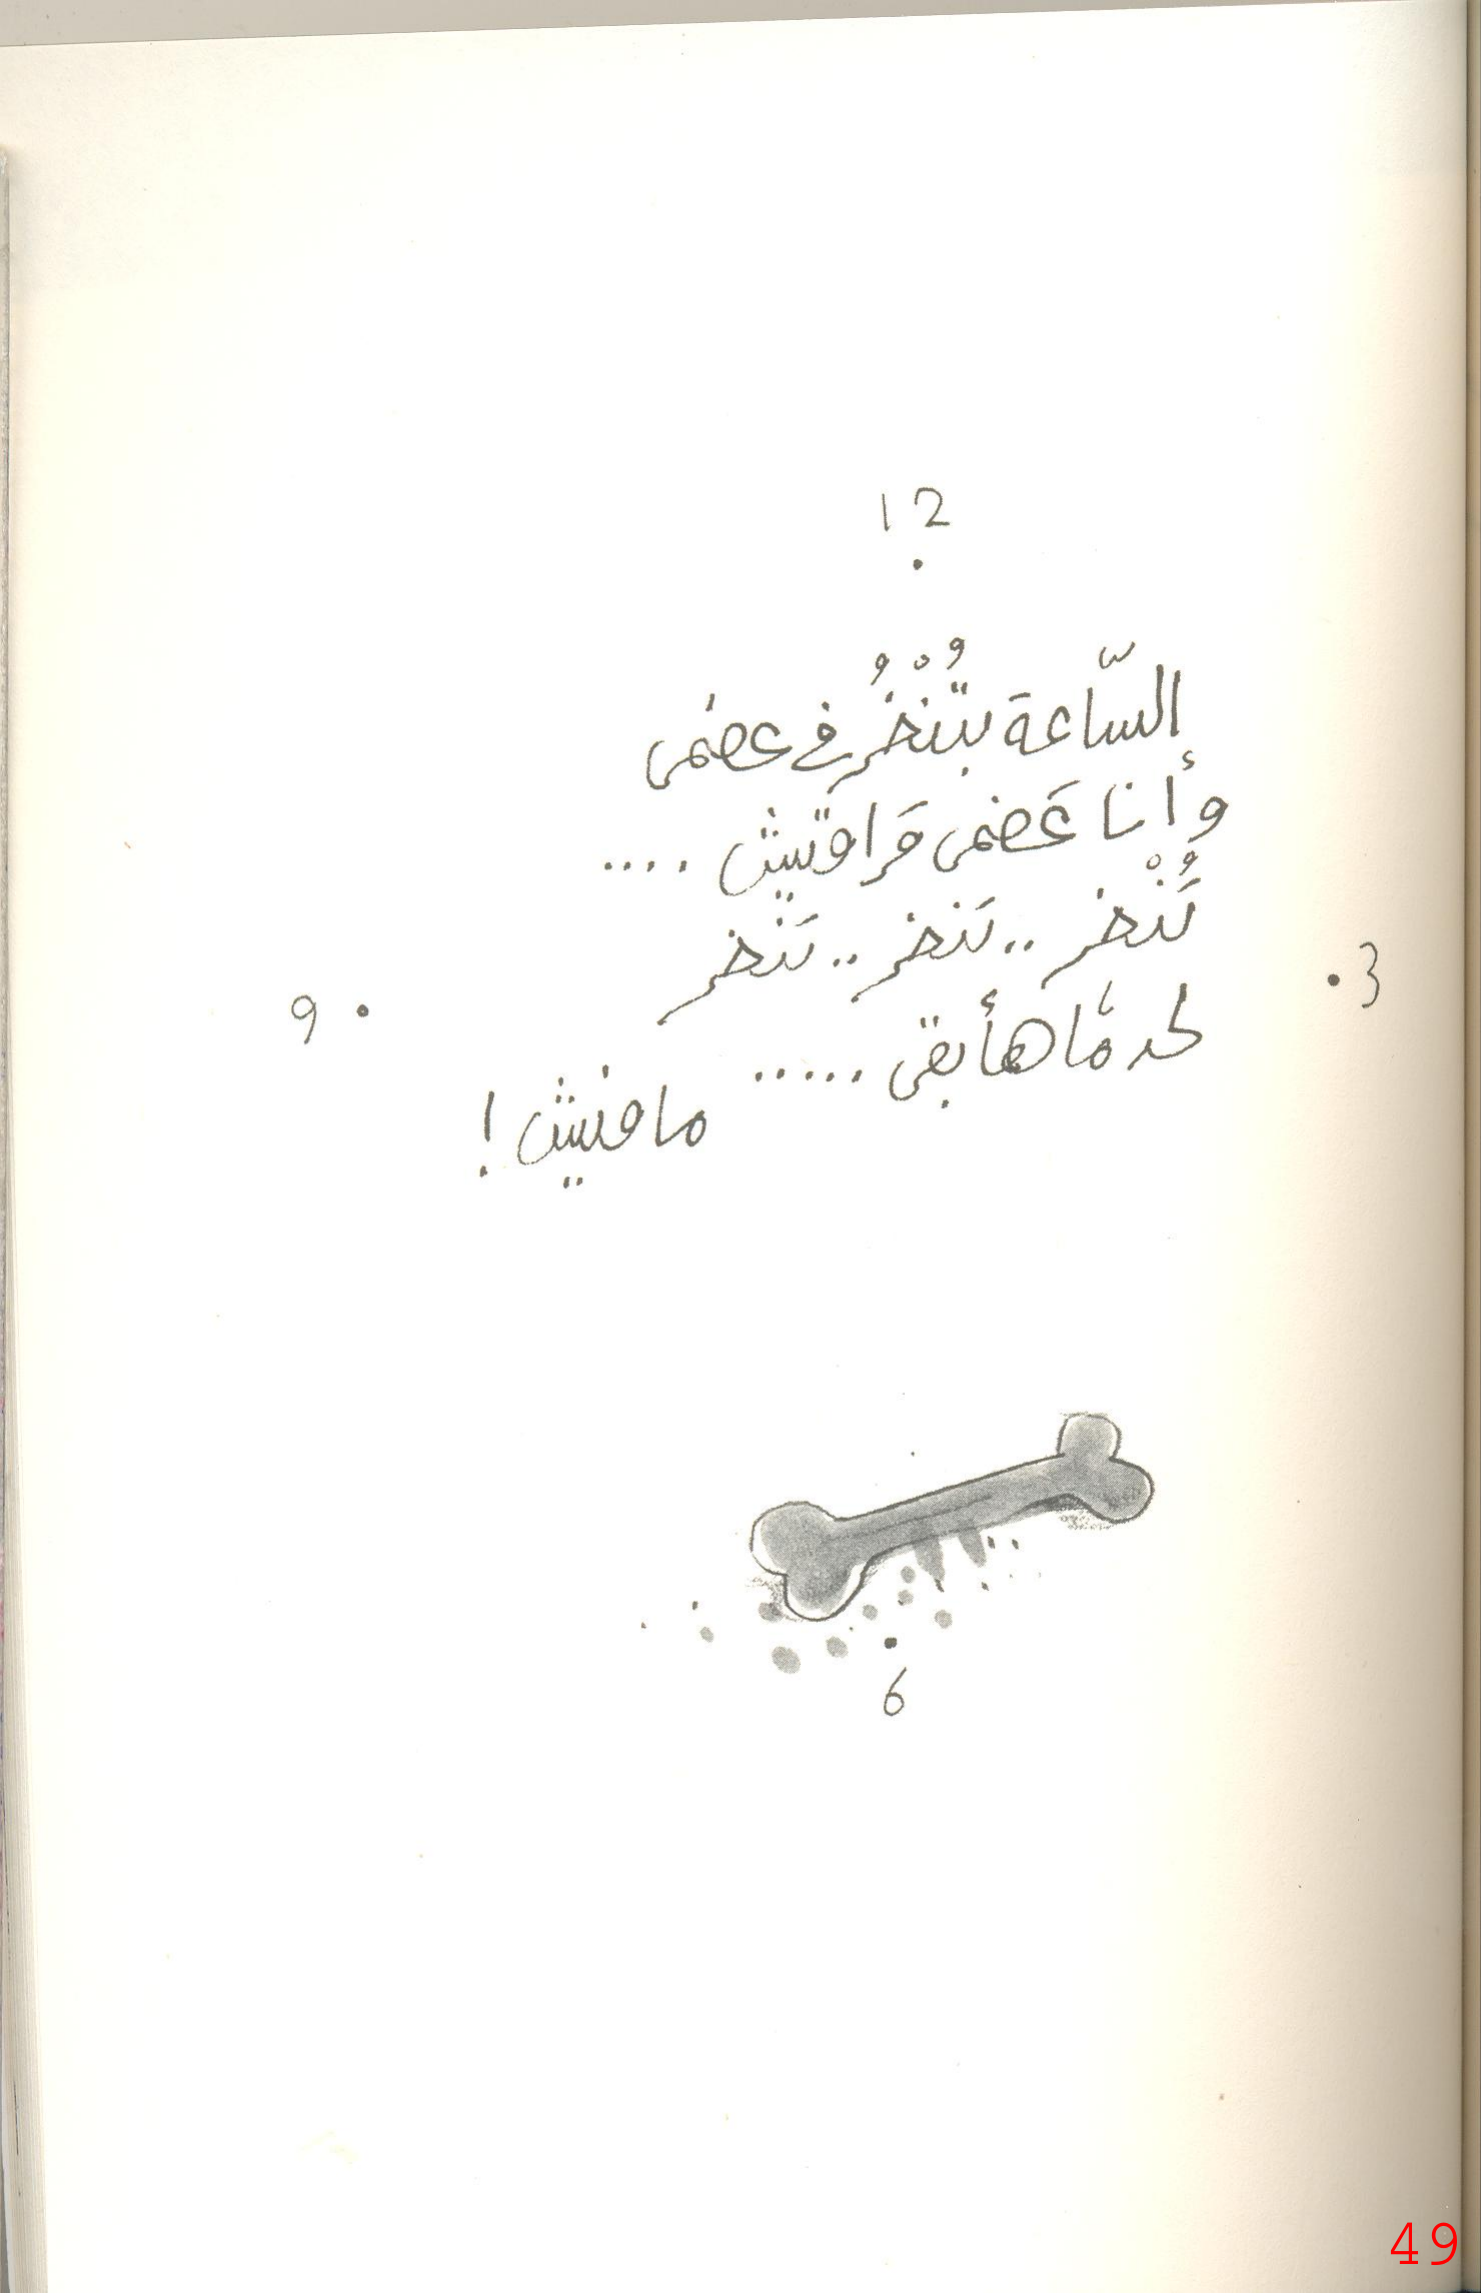 12
السّاعة بتُنْخُر في عضمى
وأنا عَضمى قَراقيش ....
تُنْخر .. تَنخر .. تَنْخر
لحد مّا هأبقى .....
ما فيش !
3
9
6
49